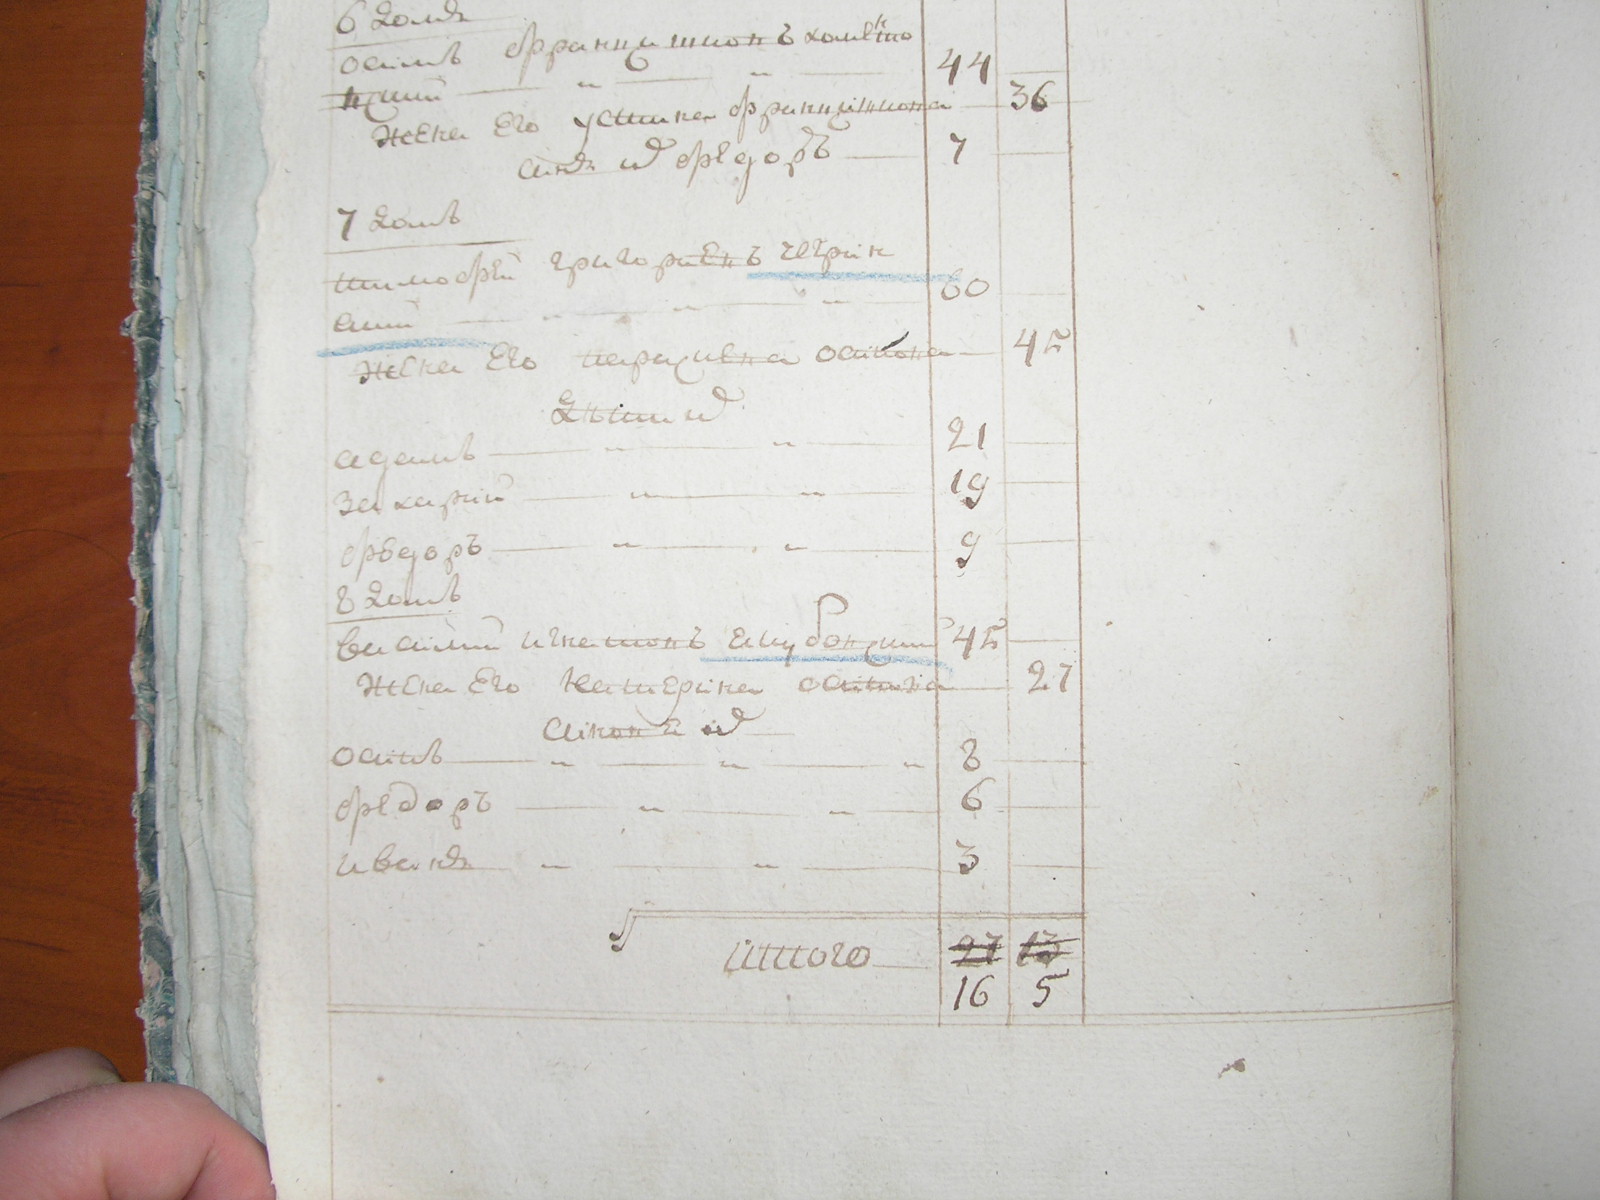 6 домъ
осипъ францишковъ
44
жена Его устина францишкова 36
синъ ихъ федоръ 7
7 домъ
тимофей григориевъ
60
жена Его параскева осипова 45
дети их
адамъ 21
захарий 19
федоръ 9
8 домъ
василий игнатовъ 45
жена Его катерина осипова 27
синове их
осипъ 8
федоръ 6
иванъ 3
итого 27 13
16 5